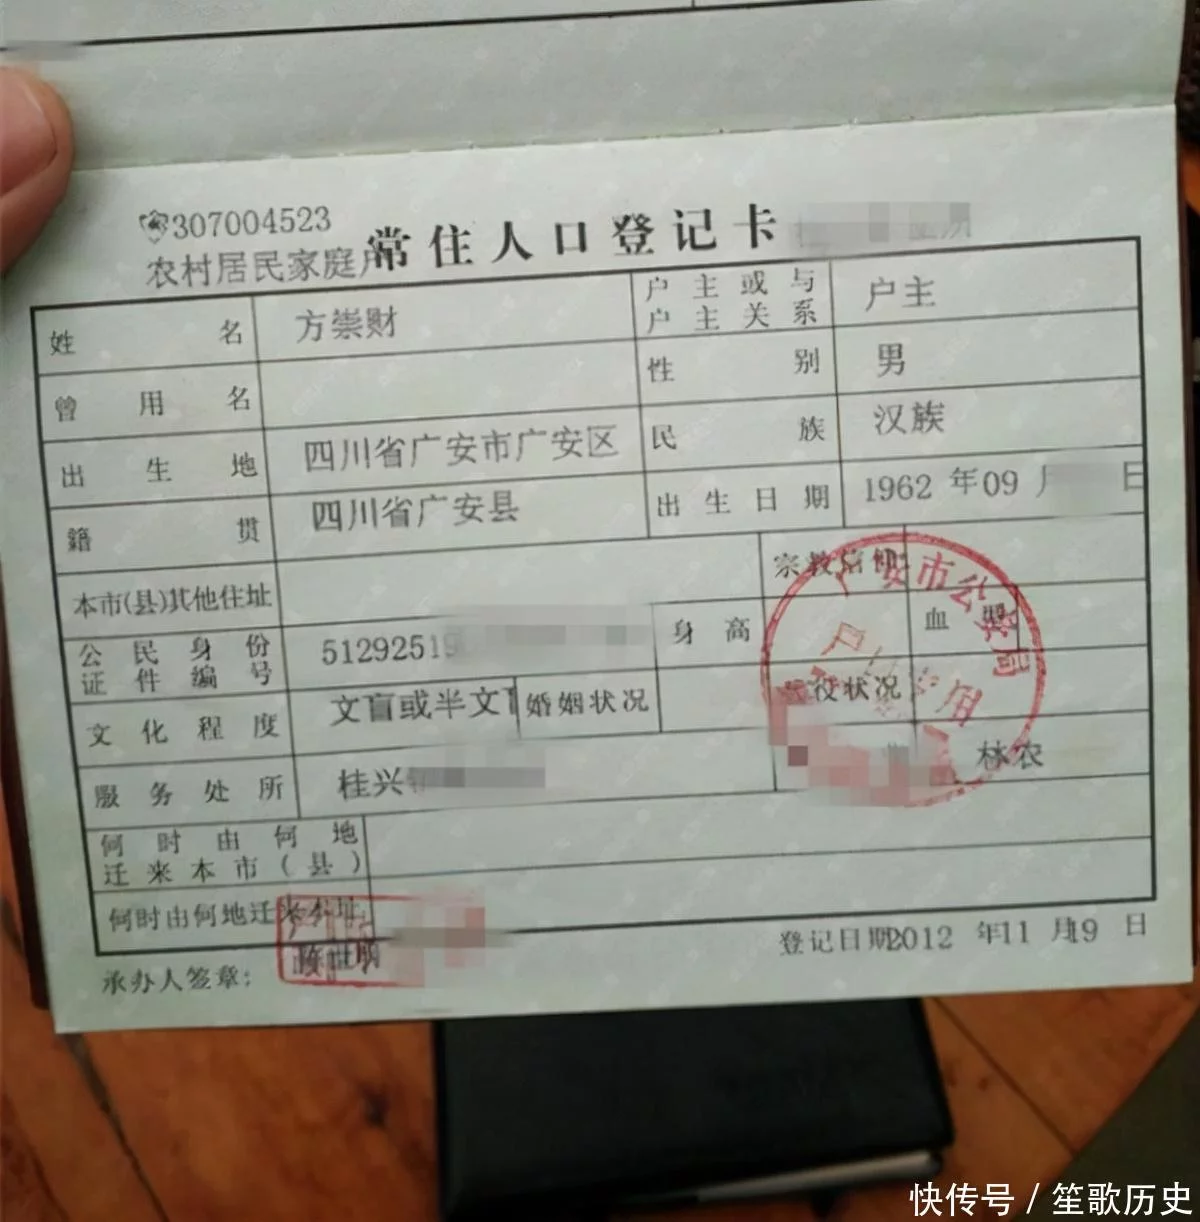 307004523
农村居民家庭户
常住人口登记卡
姓名 方崇财 户主或与户主关系 户主
曾用名 性别 男
出生地 四川省广安市广安区 民族 汉族
籍贯 四川省广安县 出生日期 1962年09月 日
本市(县)其他住址 宗教信仰
公民身份证件编号 51292519 身高 血型
文化程度 文盲或半文盲 婚姻状况 兵役状况
服务处所 桂兴 林农
何时由何地迁来本市(县)
何时由何地迁来本址
广安市公安局
登记日期2012年11月19日
承办人签章:
快传号/笙歌历史